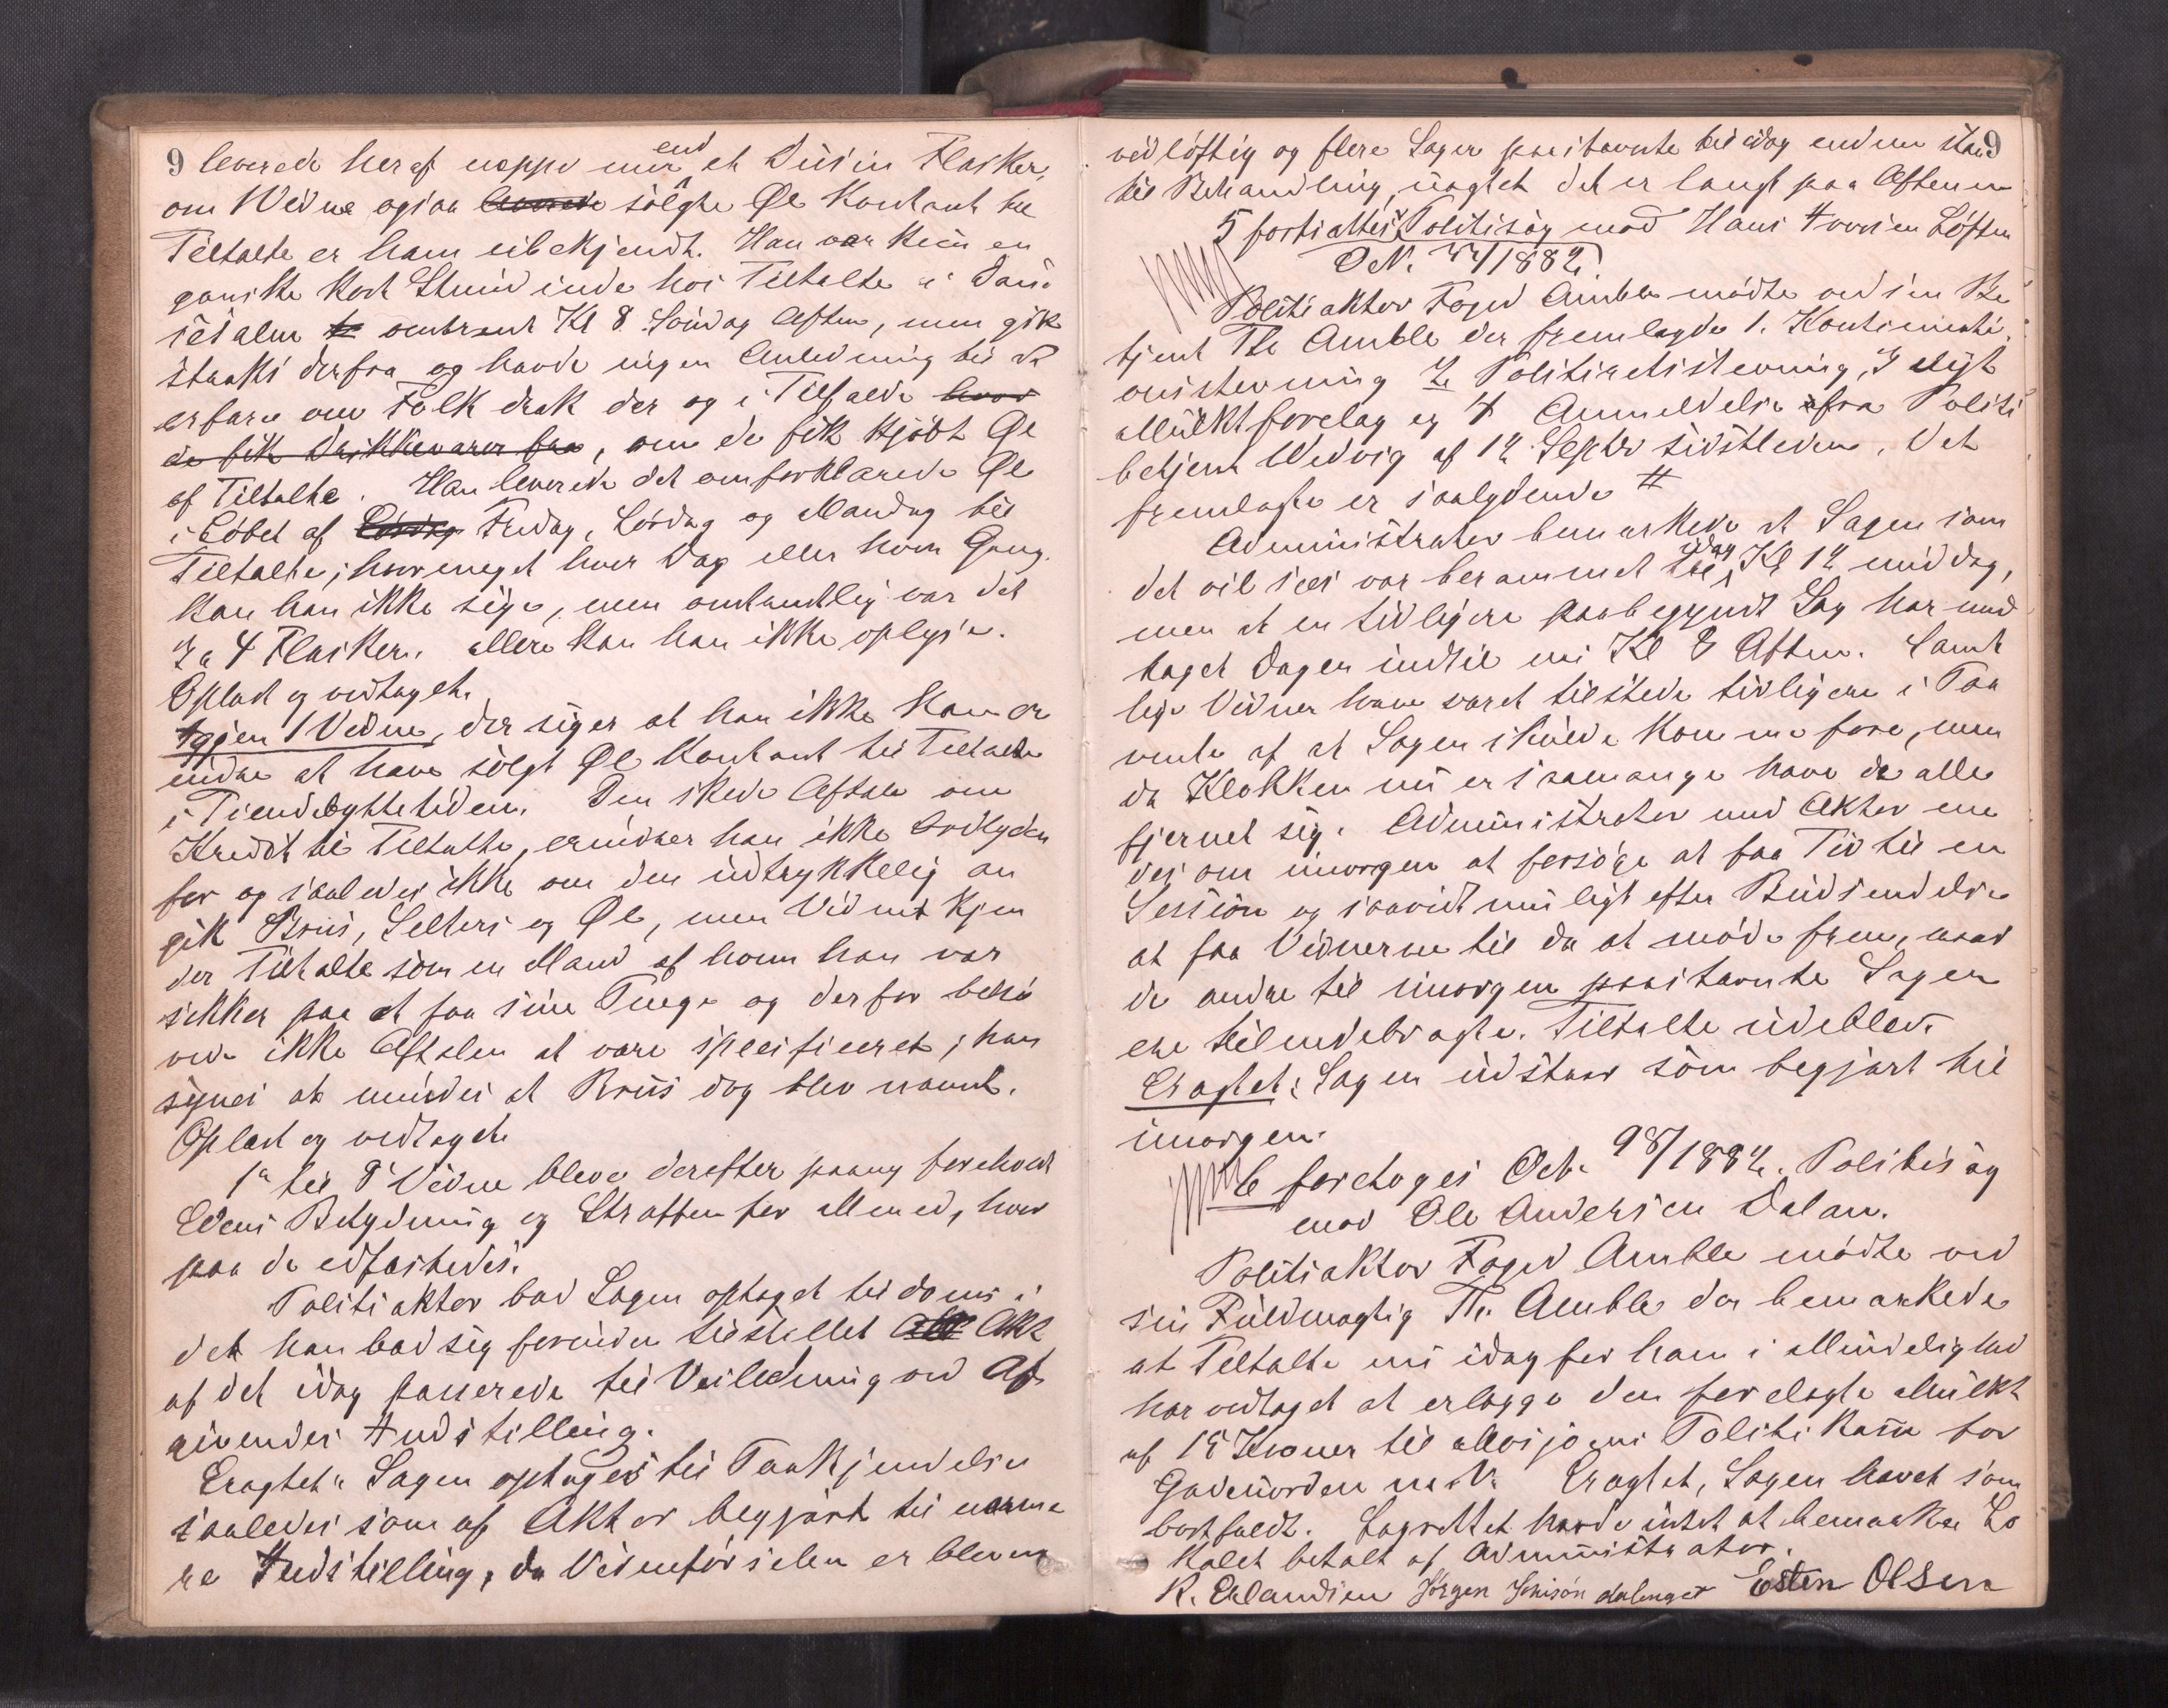 9 leverede heraf neppe mer end et Dusin Flasker,
om Vidne ogsaa leverede solgte Øl Kontant til
Tiltalte er ham ubekjendt. Han var kun en
ganske kort Stund inde hos Tiltalte i Dan-
sesalen omtrent Kl 8 Søndag Aften, men gik
straks derfra og havde ingen Anledning til at
erfare om Folk drak der og i Tilfælde hvor
de fik Drikkevarer fra, om de fik kjøbt Øl
af Tiltalte. Han leverede det omforklarede Øl
i Løbet af Lørdag Fredag, Lørdag og Mandag til
Tiltalte; hvormeget hver Dag eller hver Gang
kan han ikke sige, men omtrentlig var det
3 a 4 Flasker. Mere kan han ikke oplyse.
Oplæst og vedtaget.
Igjen 1 Vidne, der siger at han ikke kan er
indre at have solgt Øl Kontant til Tiltalte
i Tiendebyttetiden. Den skede Aftale om
Kredit til Tiltalte, erindrer han ikke Ordlyden
for og saaledes ikke om den udtrykkelig an
gik Brus, Selters og Øl, men Vidnet kjen
der Tiltalte som en Mand af hvem han var
sikker paa at faa sine Penge og derfor behø
vede ikke Aftalen at være specificeret; han
synes at mindes at Brus dog blev nævnt.
Oplæst og vedtaget.
1ste til 8de Vidne bleve derefter paany foreholdt
Edens Betydning og Straffen for Mened, hvor
paa de edfæstedes.
Politiaktor bad Sagen optaget til doms i
det han bad sig forinden tilstillet Akt
af det idag passerede til Veiledning ved Af
givendes Indstilling.
Eragtet: Sagen optages til Paakjendelse
saaledes som af Aktor begjært til nærme
re Indstilling, da Vidneførselen er bleven
vidløftig og flere Sager paastævnte til idag endnu staa 9
til Behandling, uagtet det er langt paa Aftenen
5 fortsattes Politisag mod Hans Iversen Løften
Oct. 1882.
Politiaktor Foged Amble mødte ved sin Be
tjent Th Amble der fremlagde 1. Kontinuati
onsstevning 2 Politiretsstevning, 3 Nyt
Mulktforelæg og 4 Anmeldelse fra Politi
betjent Wedvig af 12 Septbr sidstleden. Det
fremlagte er saalydende #
Administrator bemærkede at Sagen som
det vil sees var berammet til idag Kl 12 middag,
men at en tidligere paabegyndt Sag har med
taget Dagen indtil nu Kl 8 Aften. Samt
lige Vidner have været tilstede tidligere i Paa
vente af at Sagen skulde komme fore, men
da Klokken nu er saamange have de alle
fjernet sig. Administrator med Aktor ene
des om imorgen at forsøge at faa Tid til en
Session og saavidt muligt efter Budsendelse
at faa Vidnerne til da at møde frem, naar
de andre til imorgen paastævnte Sager
ere tilendebragte. Tiltalte udeblev.
Eragtet: Sagen udstaar som begjært til
imorgen.
6 foretoges Oct. 1882. Politisag
mod Ole Andersen Dalan.
Politiaktor Foged Amble mødte ved
sin Fuldmægtig Th. Amble der bemærkede
at Tiltalte nu idag for ham i Mindelighed
har vedtaget at erlægge den forelagte Mulkt
af 15 Kroner til Mosjøens Politikasse for
Gadeuorden m.V. Eragtet, Sagen hævet som
bortfaldt. Lagrettet havde intet at bemærke Lo
kalet betalt af Administrator.
R. Erlandsen Jørgen Jonsøn Esten Olsen